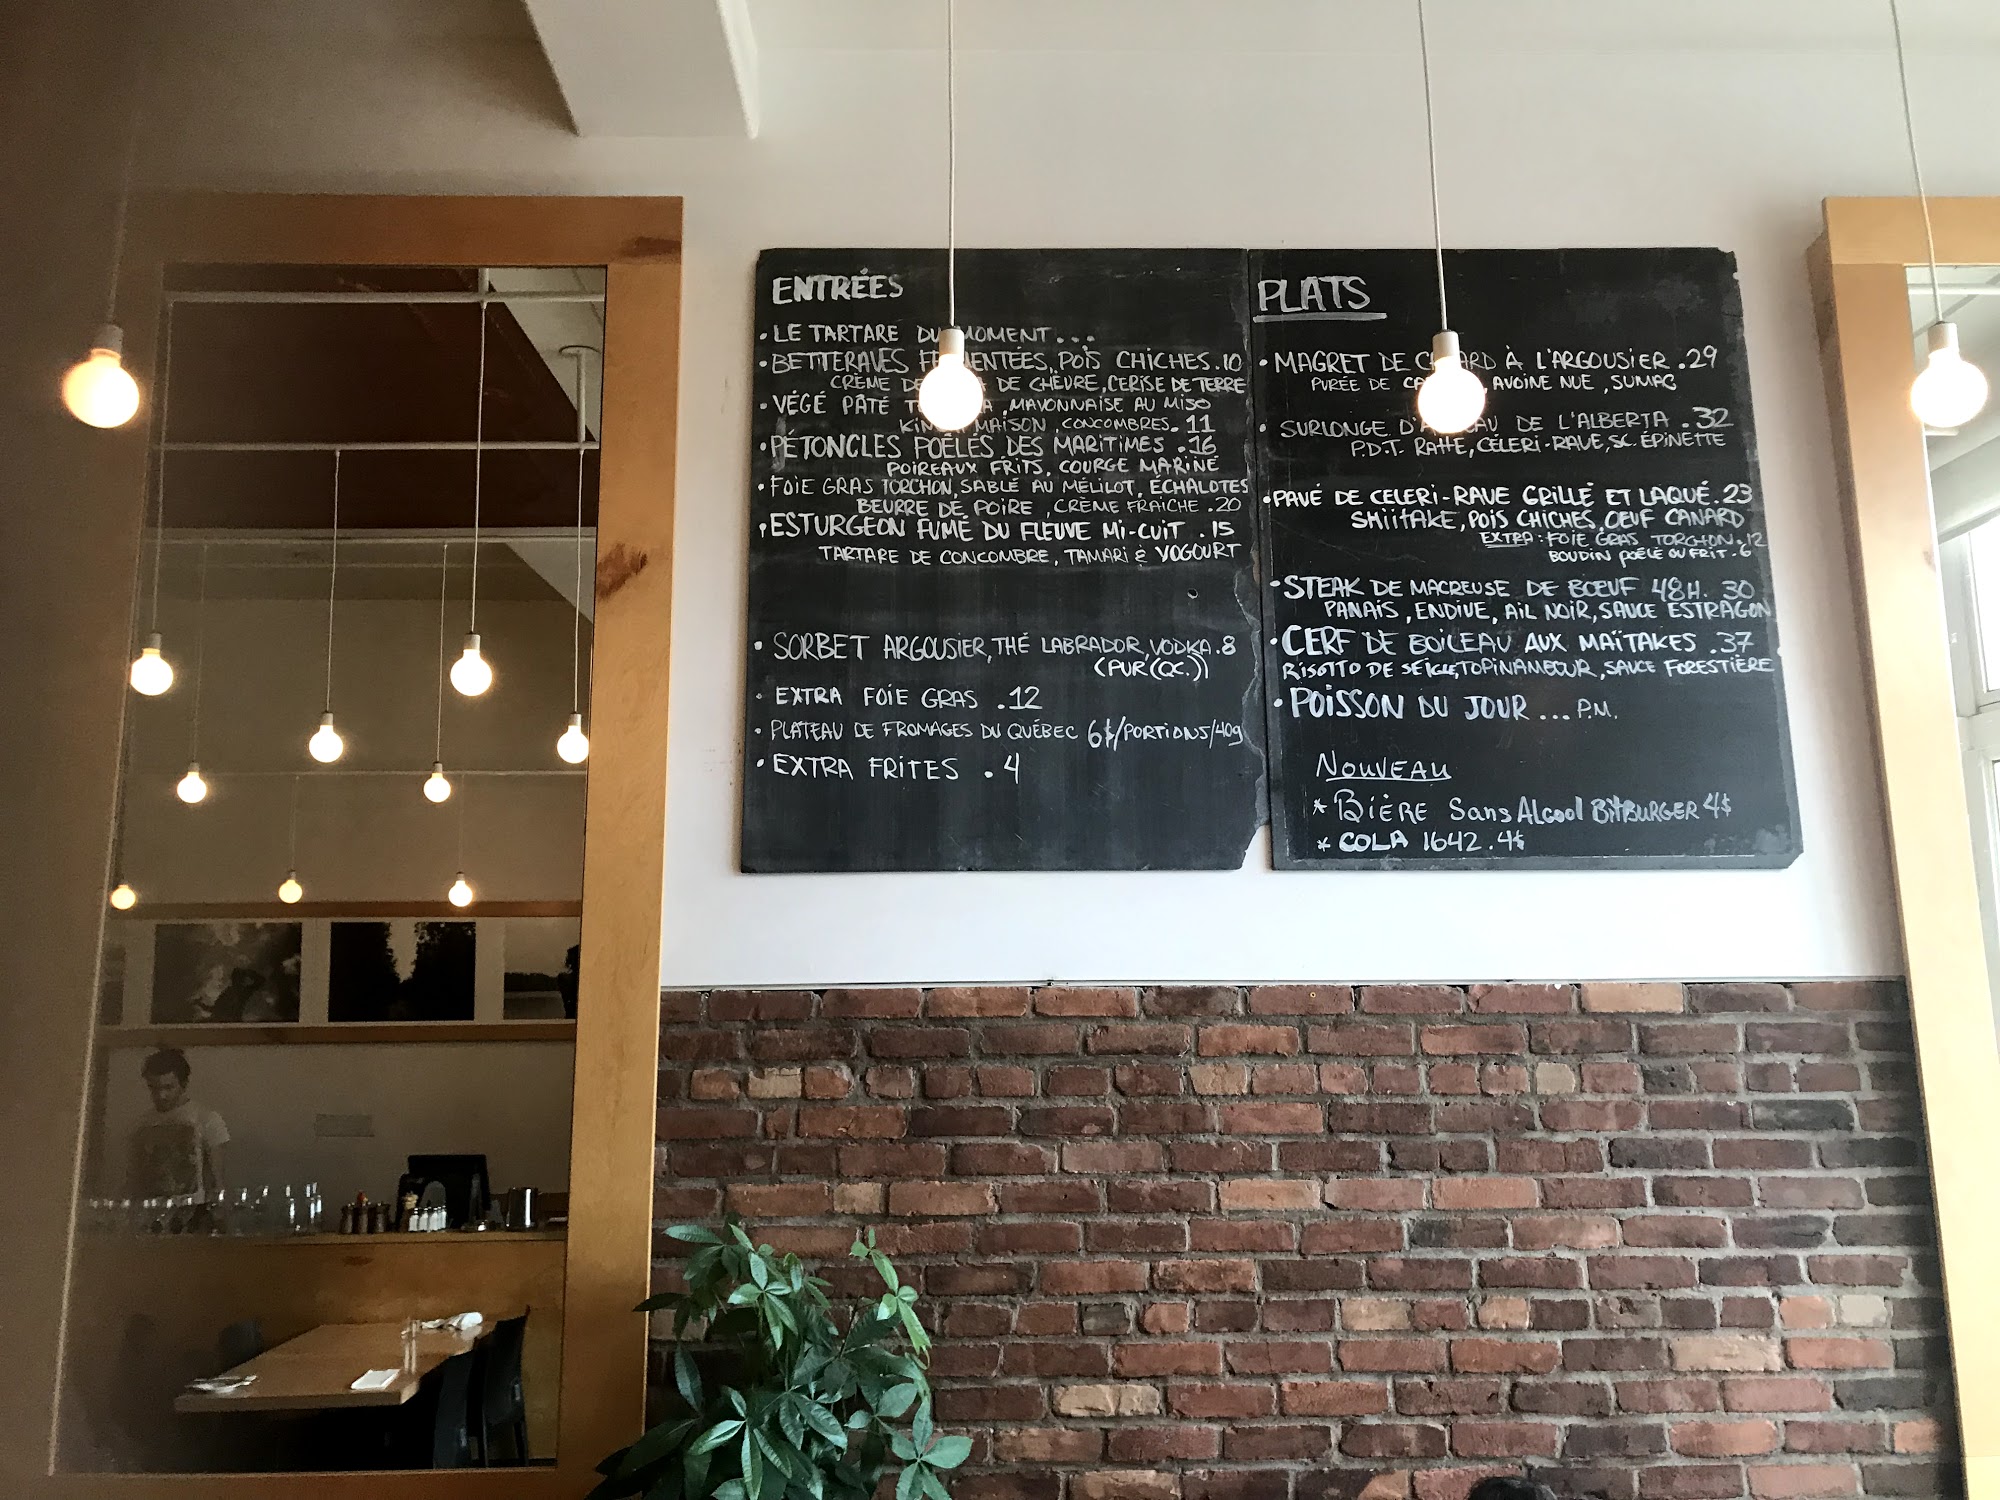 ENTRÉES
• LE TARTARE DU MOMENT...
• BETTERAVES FERMENTÉES, POIS CHICHES . 10
CRÈME DE DE CHÈVRE, CERISE DE TERRE
• VÉGÉ PÂTÉ , MAYONNAISE AU MISO
MAISON, CONCOMBRES . 11
• PÉTONCLES POÊLÉS DES MARITIMES . 16
POIREAUX FRITS, COURGE MARINÉ
• FOIE GRAS TORCHON, SABLÉ AU MÉLILOT, ÉCHALOTES
BEURRE DE POIRE, CRÈME FRAICHE . 20
• ESTURGEON FUMÉ DU FLEUVE MI-CUIT . 15
TARTARE DE CONCOMBRE, TAMARI & YOGOURT
• SORBET ARGOUSIER, THÉ LABRADOR, VODKA . 8
(PUR (QC.))
• EXTRA FOIE GRAS . 12
• PLATEAU DE FROMAGES DU QUÉBEC 6$/PORTIONS/40g
• EXTRA FRITES . 4
PLATS
• MAGRET DE CANARD À L'ARGOUSIER . 29
PURÉE DE , AVOINE NUE, SUMAC
• SURLONGE D'AGNEAU DE L'ALBERTA . 32
P.D.T. RATTE, CÉLERI-RAVE, SC. ÉPINETTE
• PAVÉ DE CELERI-RAVE GRILLÉ ET LAQUÉ . 23
SHIITAKE, POIS CHICHES, OEUF CANARD
EXTRA : FOIE GRAS TORCHON . 12
BOUDIN POÊLÉ OU FRIT . 6
• STEAK DE MACREUSE DE BOEUF 48H. 30
PANAIS, ENDIVE, AIL NOIR, SAUCE ESTRAGON
• CERF DE BOILEAU AUX MAÏTAKES . 37
RISOTTO DE SEIGLE, TOPINAMBOUR, SAUCE FORESTIÈRE
• POISSON DU JOUR ... P.M.
NOUVEAU
* BIÈRE SANS ALCOOL BITBURGER 4$
* COLA 1642 . 4$